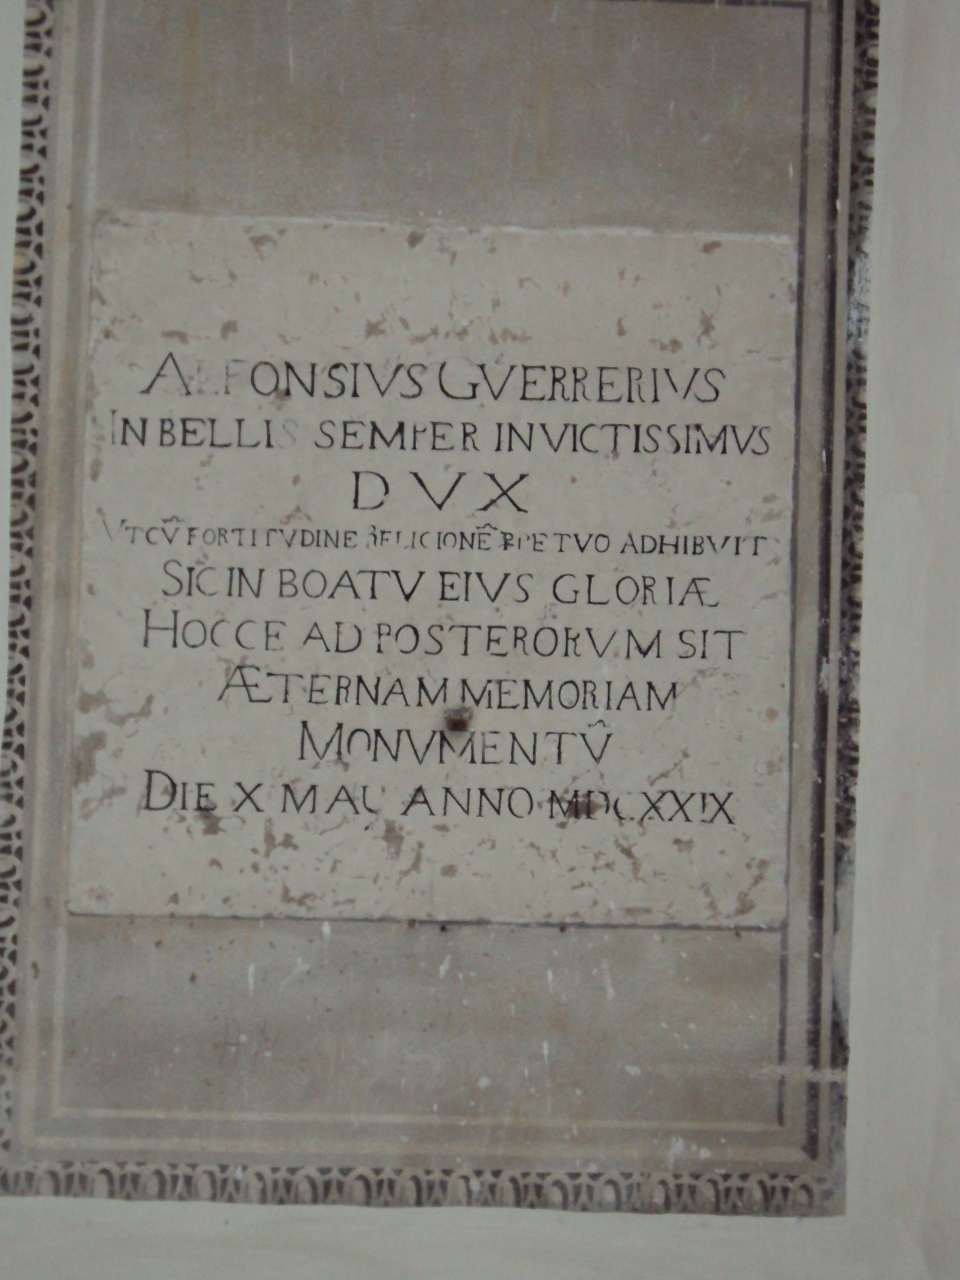 ALFONSIVS GVERRERIVS
IN BELLIS SEMPER INVICTISSIMVS
DVX
VT CV̂ FORTITVDINE RELIGIONÊ PPETVO ADHIBVIT
SIC IN BOATV EIVS GLORIÆ
HOCCE AD POSTERORVM SIT
ÆTERNAM MEMORIAM
MONVMENTV̂
DIE X MAII ANNO MDCXXIX